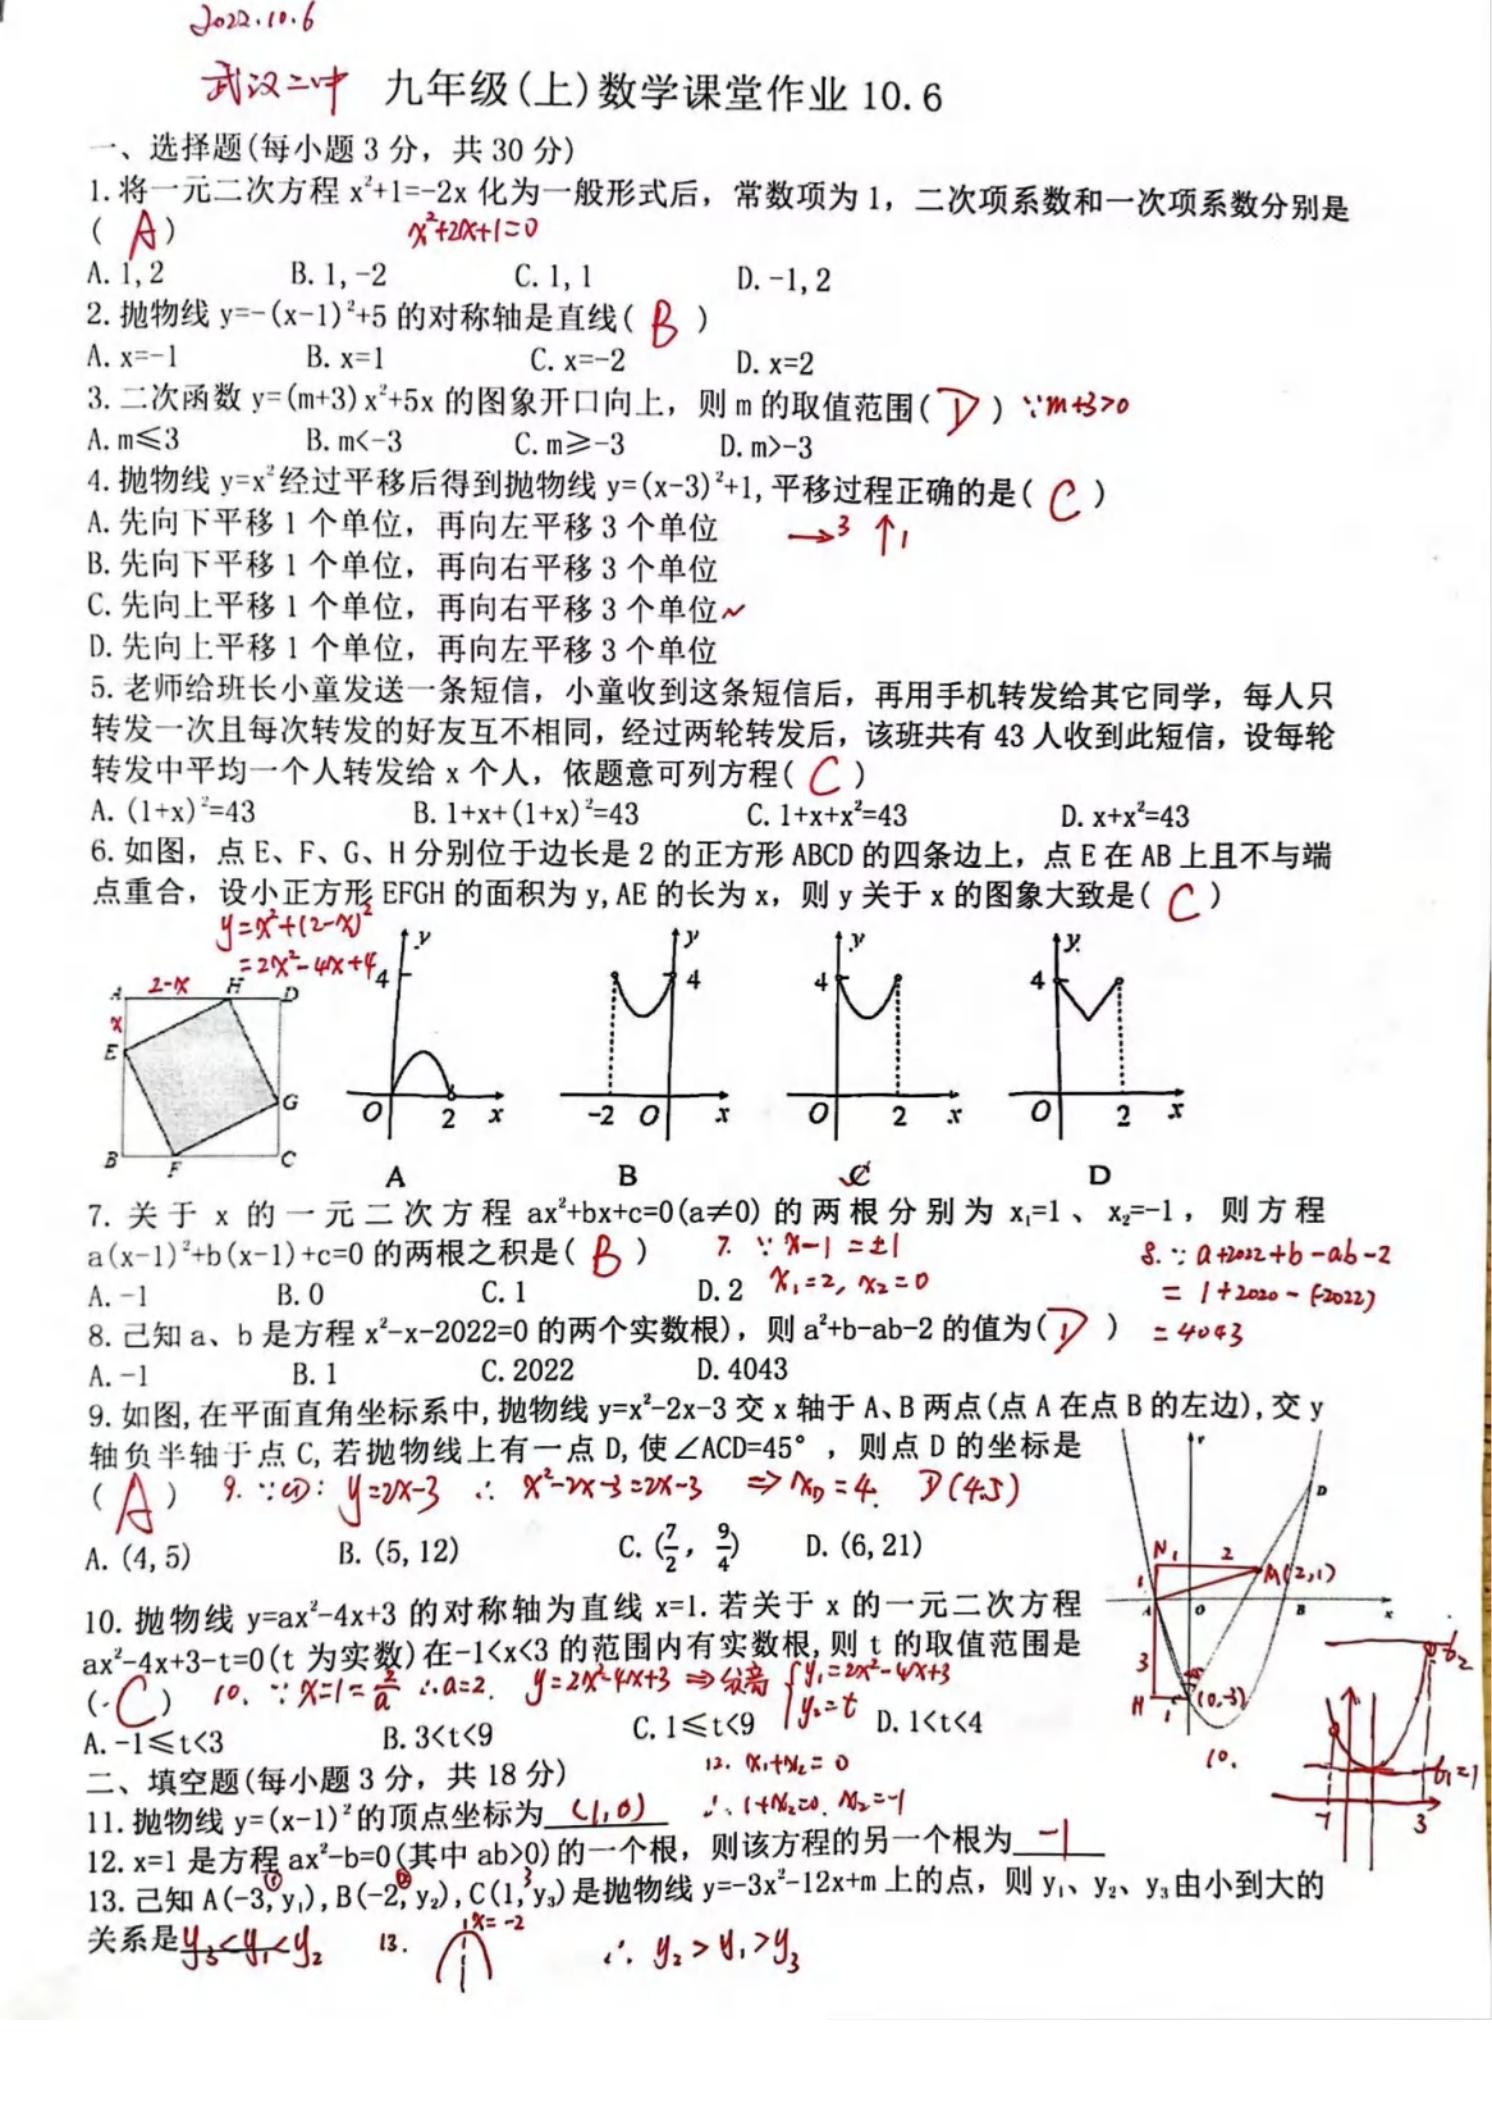 2022.10.6
武汉二中 九年级(上)数学课堂作业 10.6
一、选择题(每小题 3 分，共 30 分)
1.将一元二次方程 x²+1=-2x 化为一般形式后，常数项为 1，二次项系数和一次项系数分别是
( A ) x²+2x+1=0
A.1,2 B.1,-2 C.1,1 D.-1,2
2.抛物线 y=-(x-1)²+5 的对称轴是直线( B )
A.x=-1 B.x=1 C.x=-2 D.x=2
3.二次函数 y=(m+3)x²+5x 的图象开口向上，则 m 的取值范围( D ) ∵m+3>0
A.m≤3 B.m<-3 C.m≥-3 D.m>-3
4.抛物线 y=x²经过平移后得到抛物线 y=(x-3)²+1,平移过程正确的是( C )
A.先向下平移 1 个单位，再向左平移 3 个单位 →3 ↑1
B.先向下平移 1 个单位，再向右平移 3 个单位
C.先向上平移 1 个单位，再向右平移 3 个单位
D.先向上平移 1 个单位，再向左平移 3 个单位
5.老师给班长小童发送一条短信，小童收到这条短信后，再用手机转发给其它同学，每人只
转发一次且每次转发的好友互不相同，经过两轮转发后，该班共有 43 人收到此短信，设每轮
转发中平均一个人转发给 x 个人，依题意可列方程( C )
A.(1+x)²=43 B.1+x+(1+x)²=43 C.1+x+x²=43 D.x+x²=43
6.如图，点 E、F、G、H 分别位于边长是 2 的正方形 ABCD 的四条边上，点 E 在 AB 上且不与端
点重合，设小正方形 EFGH 的面积为 y,AE 的长为 x，则 y 关于 x 的图象大致是( C )
y=x²+(2-x)²
=2x²-4x+4
A 2-x H D
x
E
G
B F C
y 4 O 2 x
y 4 -2 O x
y 4 O 2 x
y 4 O 2 x
A B C D
7.关于 x 的一元二次方程 ax²+bx+c=0(a≠0)的两根分别为 x₁=1、x₂=-1，则方程
a(x-1)²+b(x-1)+c=0 的两根之积是( B ) 7. ∵x-1=±1 8.∵a+2022+b-ab-2
A.-1 B.0 C.1 D.2 x₁=2, x₂=0 = 1+2020-(-2022)
8.己知 a、b 是方程 x²-x-2022=0 的两个实数根)，则 a²+b-ab-2 的值为( D ) =4043
A.-1 B.1 C.2022 D.4043
9.如图,在平面直角坐标系中,抛物线 y=x²-2x-3 交 x 轴于 A、B 两点(点 A 在点 B 的左边),交 y
轴负半轴于点 C,若抛物线上有一点 D,使∠ACD=45°，则点 D 的坐标是
( A ) 9.∵CD: y=2x-3 ∴ x²-2x-3=2x-3 ⇒ x_D=4. D(4.5)
A.(4,5) B.(5,12) C.(7/2, 9/4) D.(6,21)
D
N 1 2 M(2,1)
1
A O B x
3
H 1 C (0,-3)
10.抛物线 y=ax²-4x+3 的对称轴为直线 x=1.若关于 x 的一元二次方程
ax²-4x+3-t=0(t 为实数)在-1<x<3 的范围内有实数根,则 t 的取值范围是
( C ) 10. ∵x=1=2/a ∴a=2. y=2x²-4x+3 ⇒ {y₁=2x²-4x+3
y₂=t
A.-1≤t<3 B.3<t<9 C.1≤t<9 D.1<t<4
10. t₂ t₁=1 -1 3
二、填空题(每小题 3 分，共 18 分) 12. x₁+x₂=0
11.抛物线 y=(x-1)²的顶点坐标为 (1,0) ∴1+x₂=0. x₂=-1
12.x=1 是方程 ax²-b=0(其中 ab>0)的一个根，则该方程的另一个根为 -1
13.己知 A(-3,y₁),B(-2,y₂),C(1,y₃)是抛物线 y=-3x²-12x+m 上的点，则 y₁、y₂、y₃由小到大的
关系是 y₃<y₁<y₂ 13. x=-2 ∴ y₂>y₁>y₃